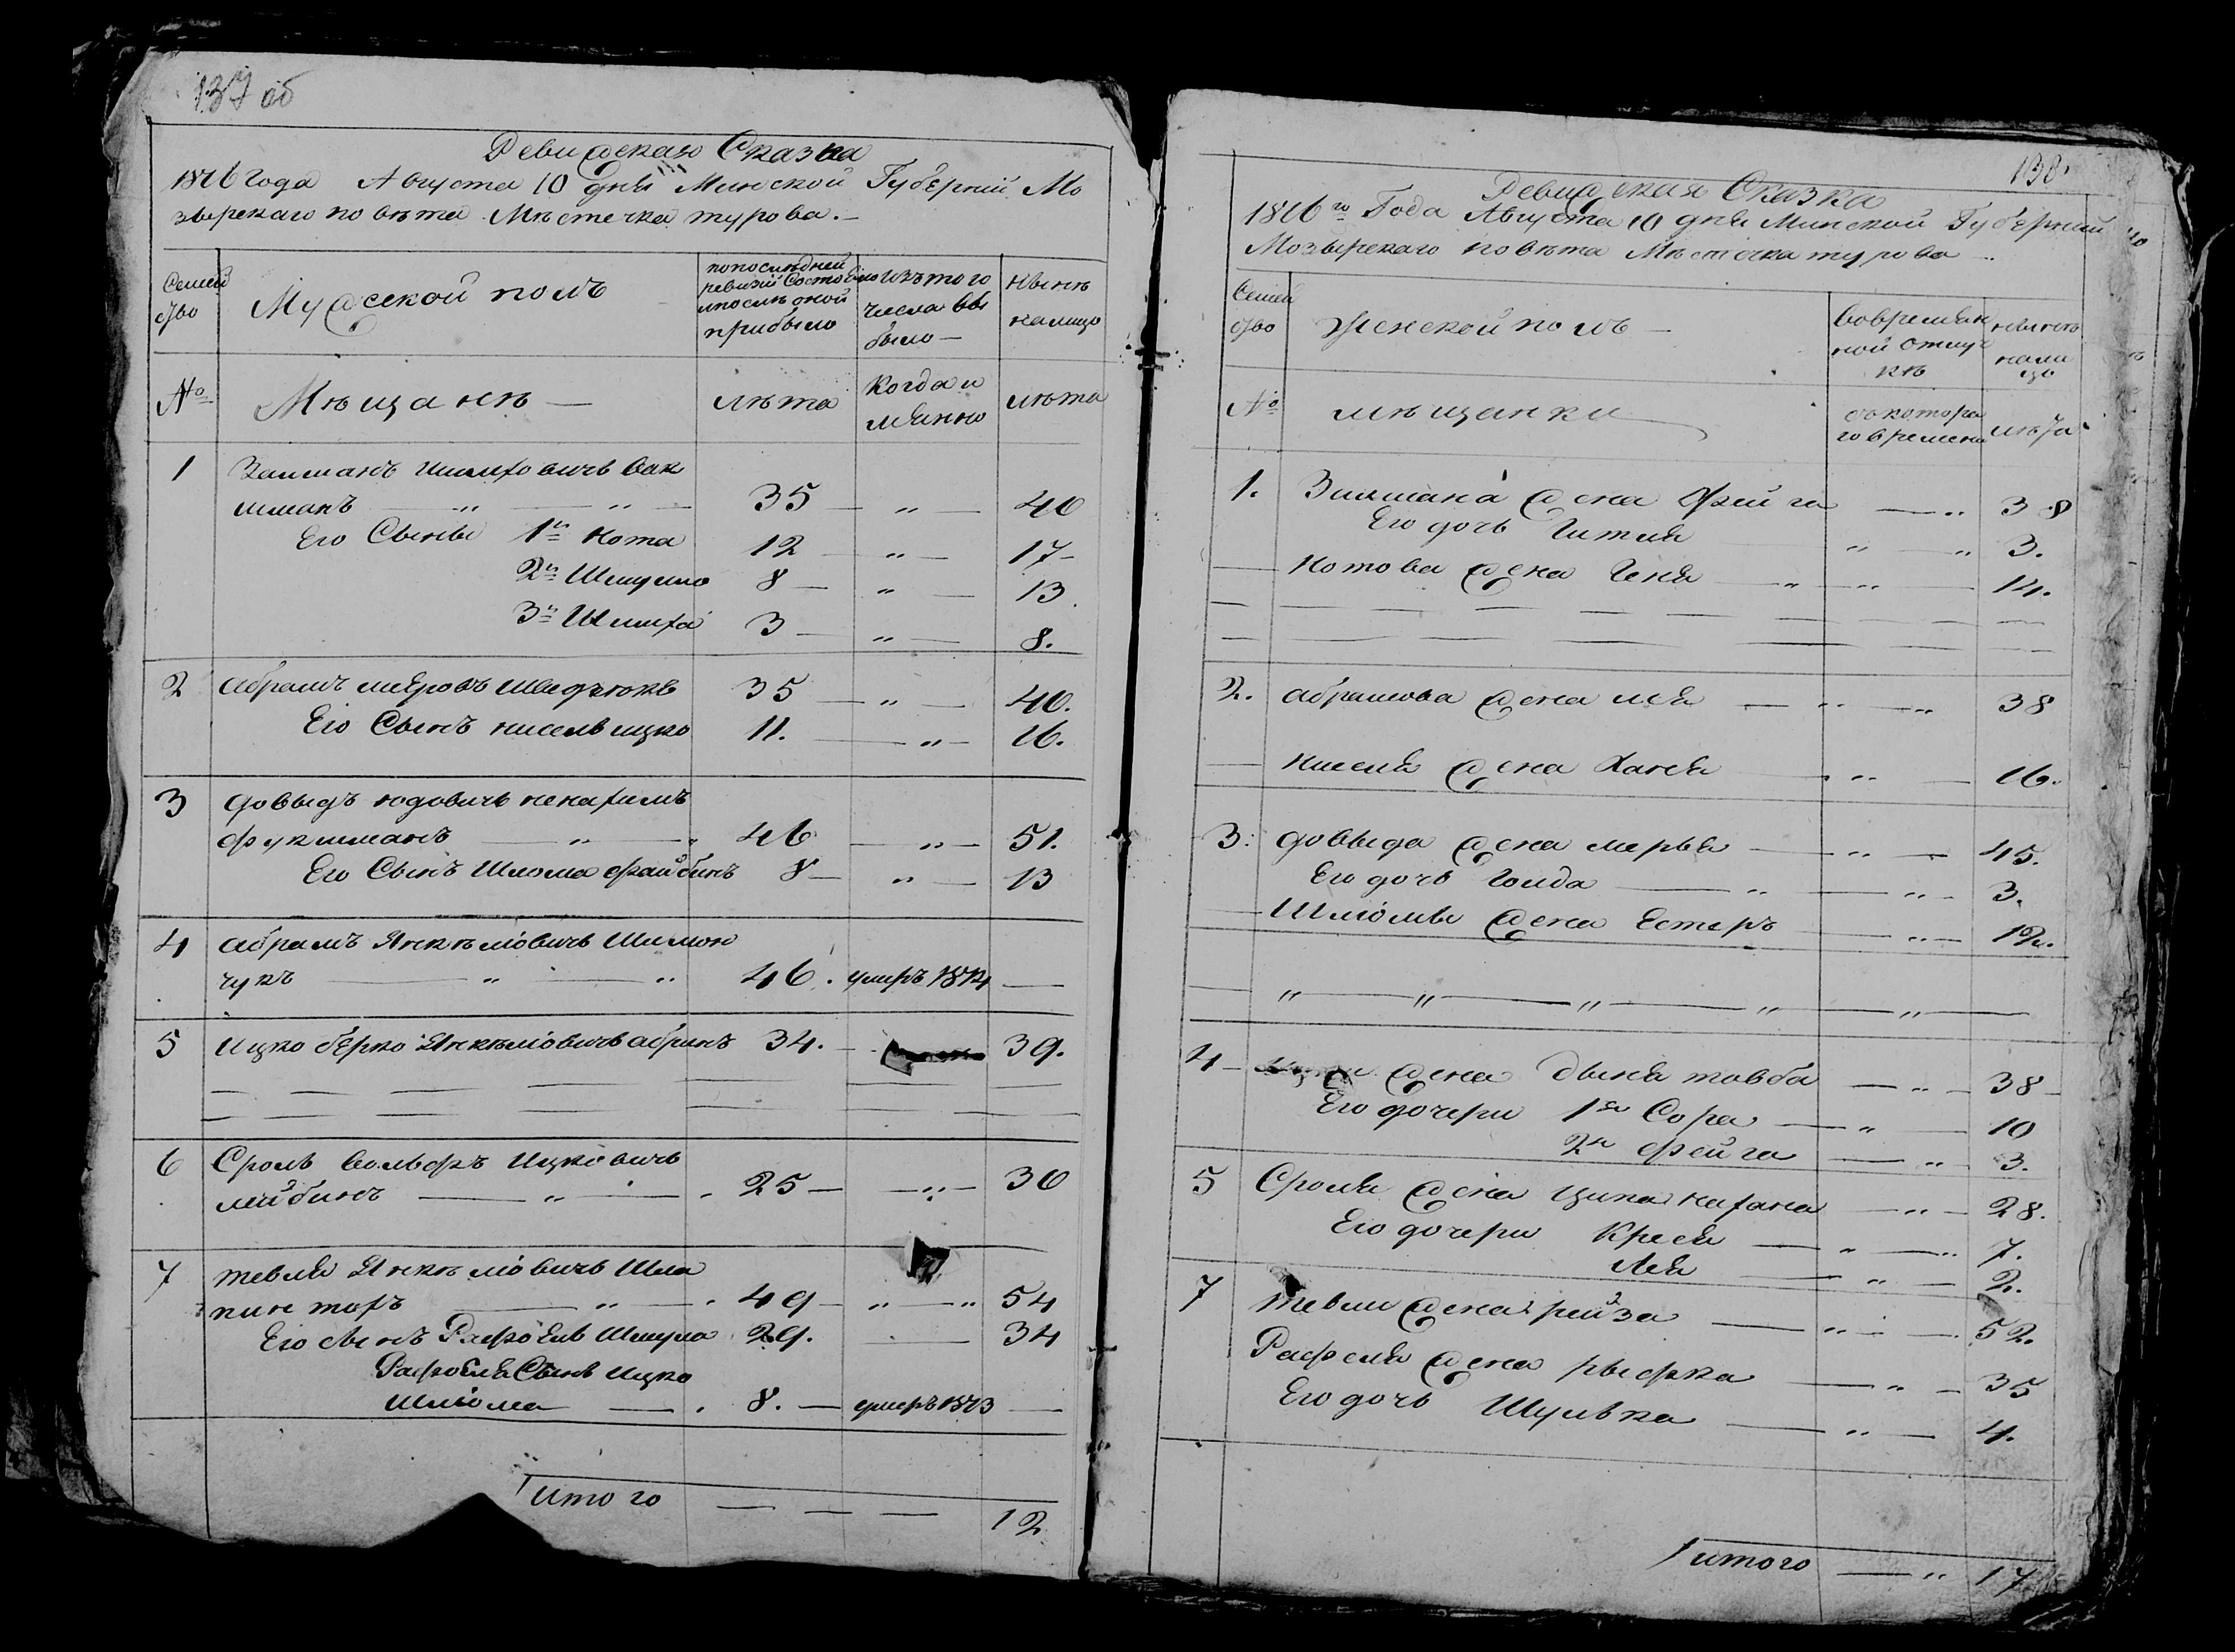 137 об
Ревижская Сказка
1816 года Августа 10 дня Минской Губернии Мо
зырскаго повѣта Мѣстечка турова.
Семей
ство
Мужской полъ
попослѣдней
ревизіи Состоѣло
ипослѣ оной
прибыло
Изътого
числа вы
было
нынѣ
налицо
№
Мѣщанѣ
лѣта
Когда и
мянно
лѣта
1
Залманъ Шлиовичъ Вак
шманъ
35
40
Его Сыны 1й Нота
12
17
2й Шмуило
8
13
3й Шлиха
3
8.
2
абрамъ меѣровъ
35
40.
Его Сынъ кисель ицко
11.
16.
3
довыдъ юдовичъ
фукшманъ
46
51.
Его Сынъ Шлома файбинъ
8
13
4
абрамъ Янкѣлiовичъ Шимон
чукъ
46.
умиръ 1814
5
Ицко бѣрко Янкѣлiовичъ абринъ
34.
39.
6
Сроль Вольфъ Ицковичъ
лейбинъ
25
30
7
тевля Янкѣлiовичъ Шла
пинтохъ
49
54
Его сынъ Рафоѣль Шмуила
29.
34
Рафоѣля Сынъ Ицко
Шлiома
8.
умеръ 1813
итого
12
138.
Ревижская Сказка
1816го Года Августа 10 дня Минской Губернии
Мозырскаго повѣта Мѣстечка турова
Семей
ство
Женской полъ
вовремян
ной отлуч
кѣ
нынѣ
нали
цо
№
мѣщанки
скотора
го времени
лѣта
1.
Залмана жена Фейга
38
Его дочь Гитля
3.
Нотова жена Геня
14.
2.
абрамова жена лея
38
киселя жена Хання
16.
3.
довыда жена мерья
45.
Его дочь голда
3.
Шлiомы жена Естеръ
12.
4
жена Дыня товба
38
Его дочери 1я Сора
10
2я фейга
3.
5
Сроля жена ципа
28.
Его дочери Крейся
7.
Лея
2.
7
тевли жена рейза
52.
Рафеля жена рыфка
35
Его дочь Шулька
4.
итого
17